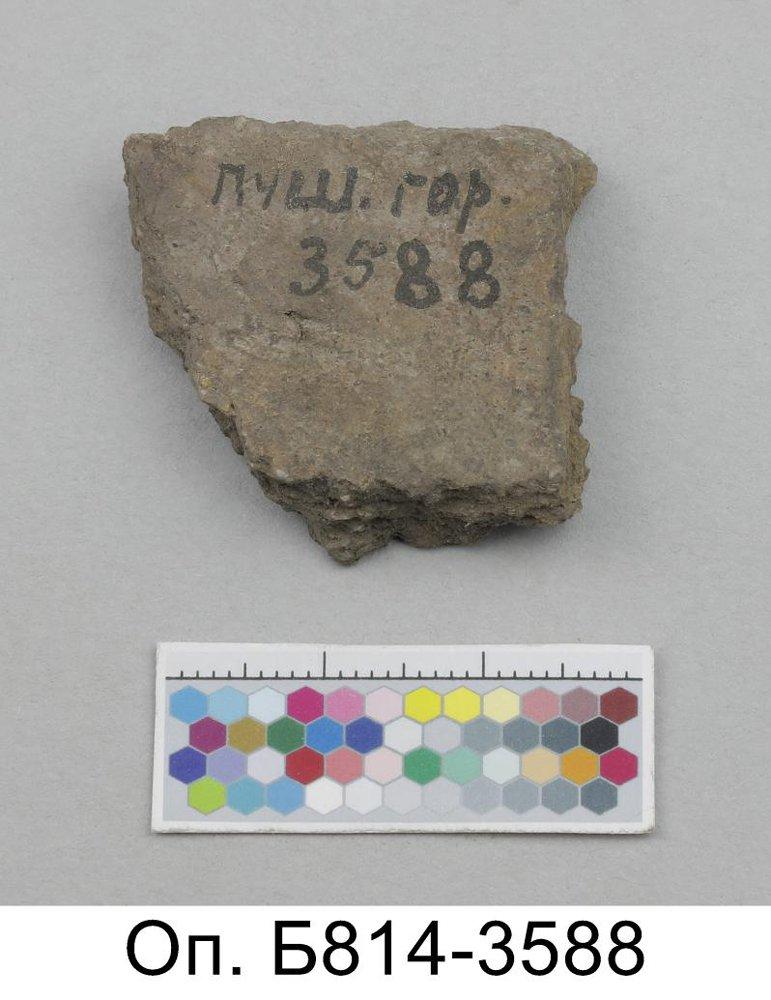 пуш. гор.
3588
Оп. Б814-3588